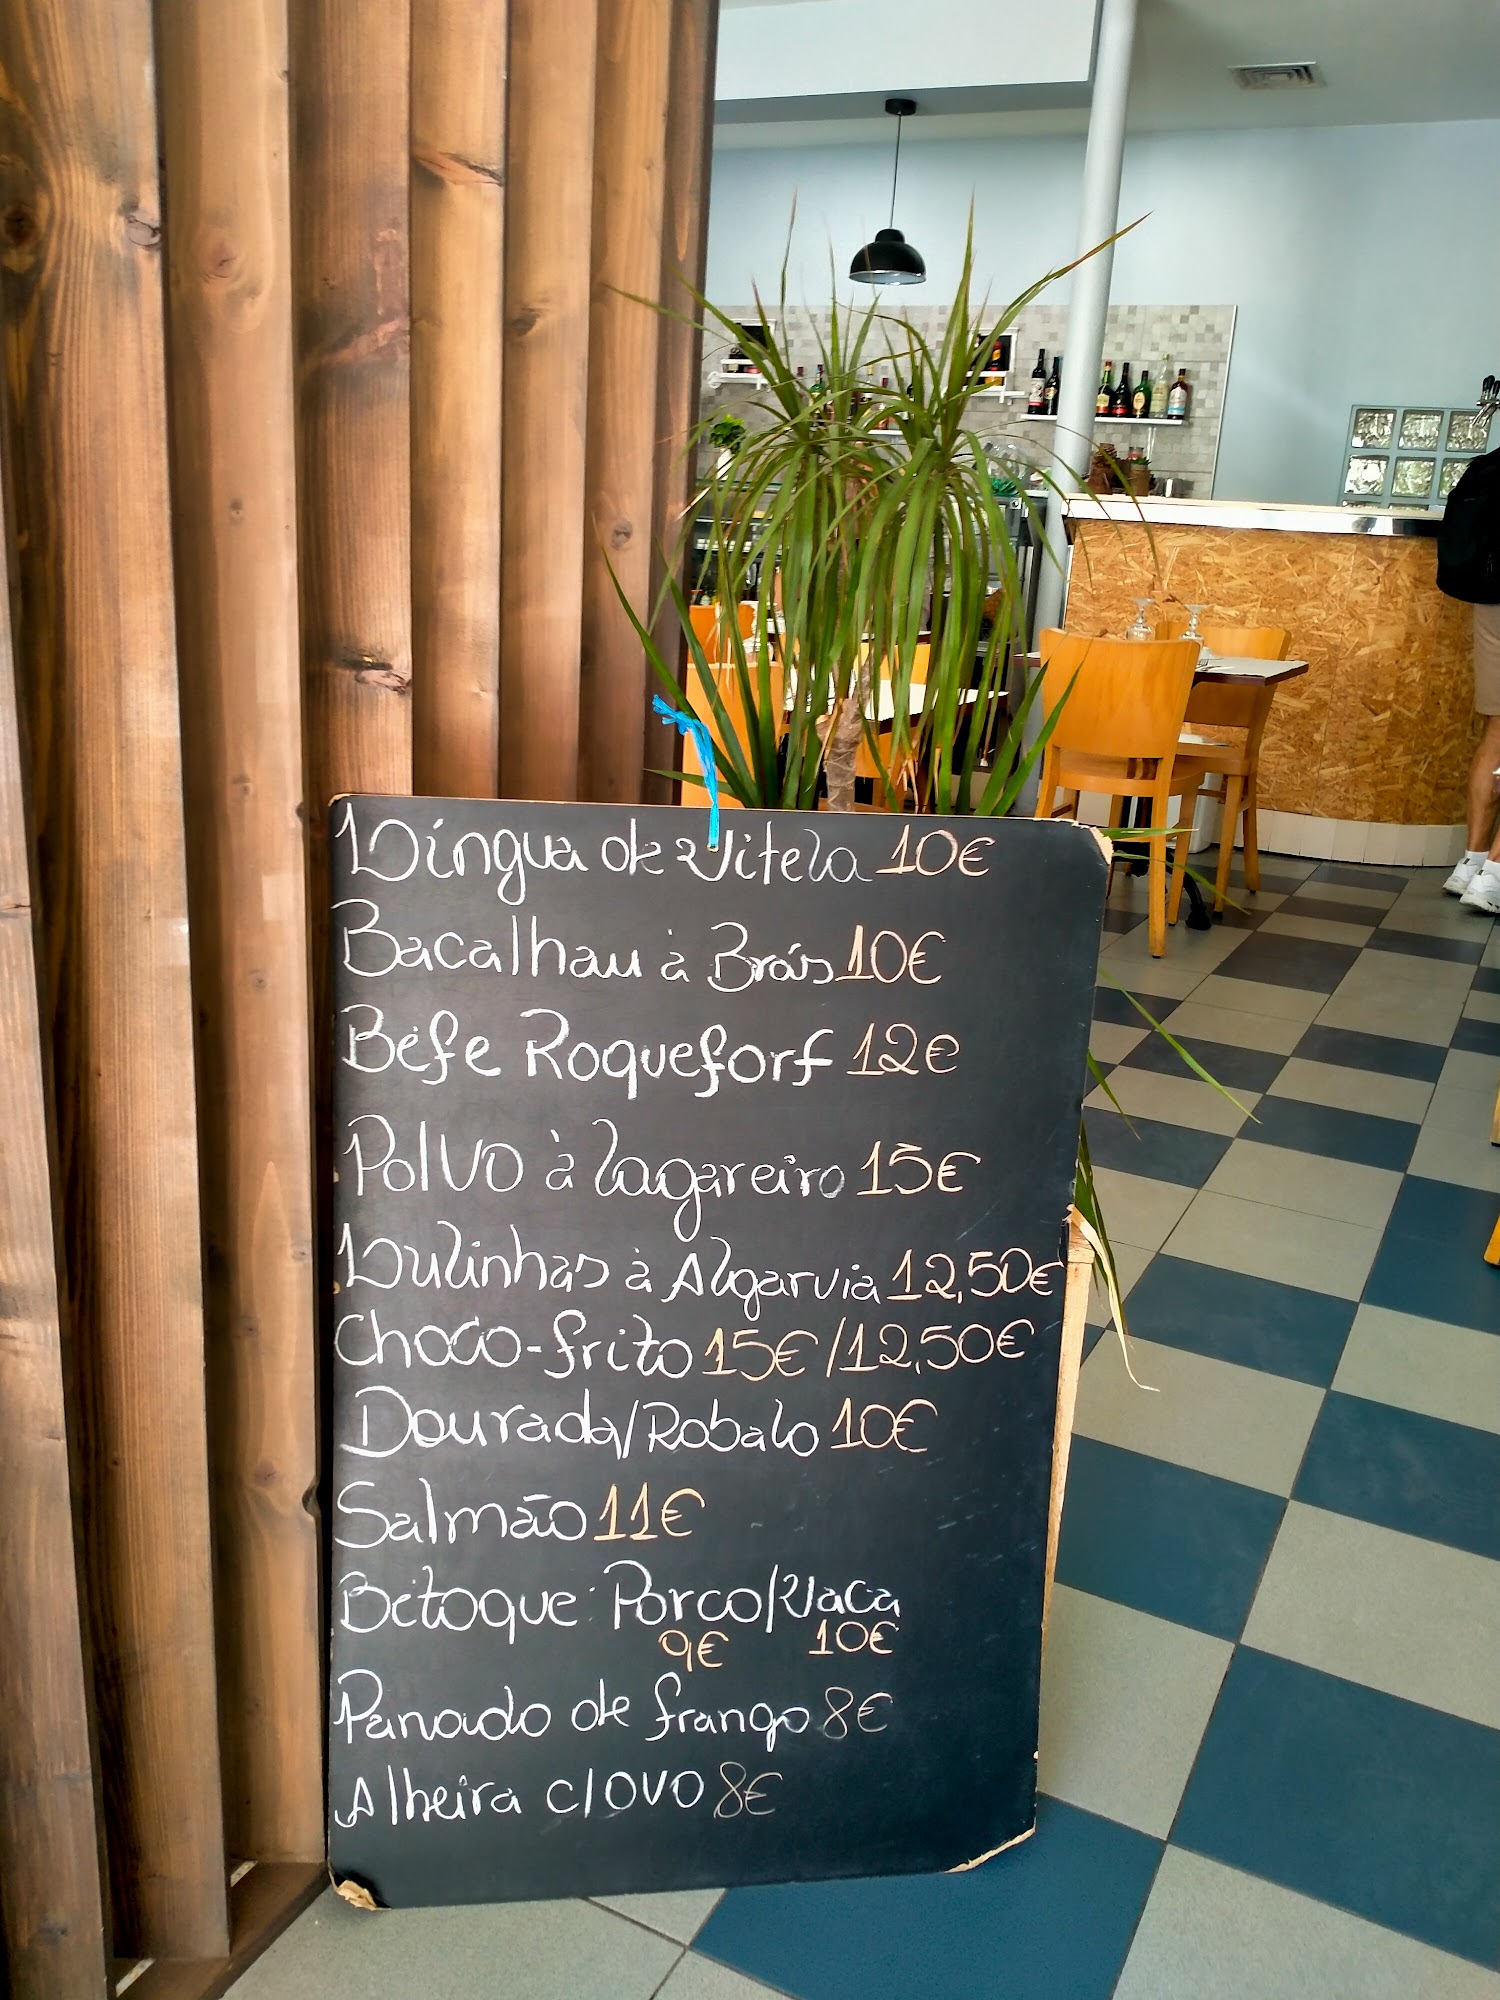 Língua de Vitela 10€
Bacalhau à Brás 10€
Béfe Roquefort 12€
Polvo à lagareiro 15€
Lulinhas à Algarvia 12,50€
Choco-frito 15€/12,50€
Dourada/Robalo 10€
Salmão 11€
Bitoque: Porco/Vaca
9€ 10€
Panado de frango 8€
Alheira c/OVO 8€